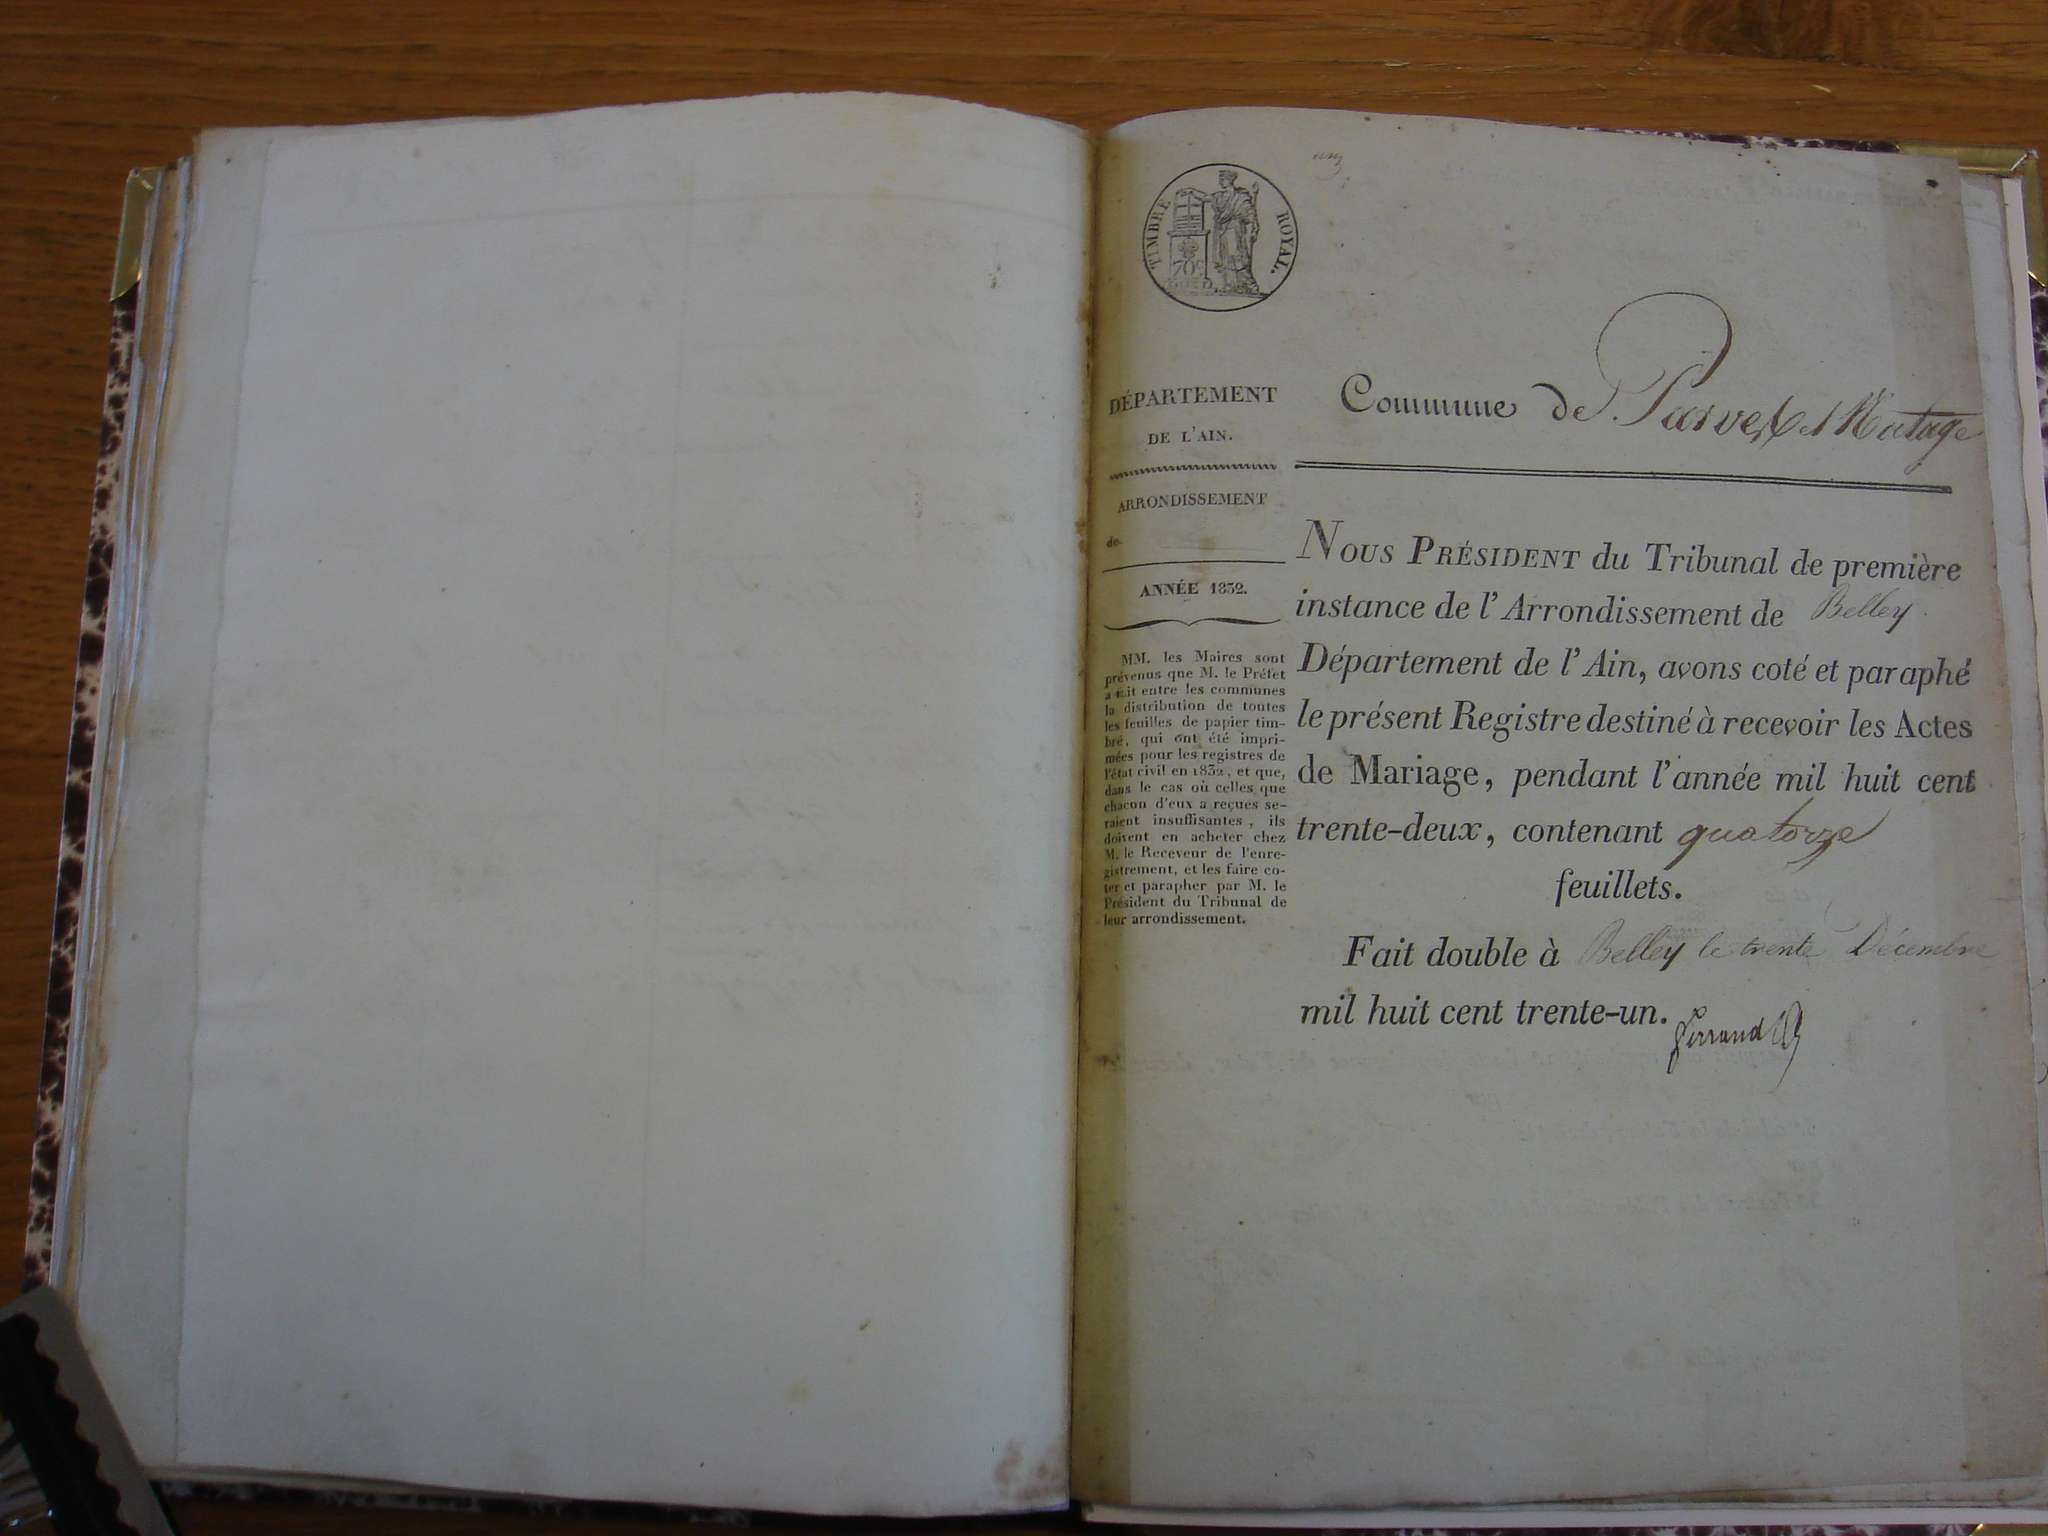 un
TIMBRE ROYAL.
70c
DÉPARTEMENT
DE L'AIN.
ARRONDISSEMENT
de
ANNÉE 1832.
MM. les Maires sont
prévenus que M. le Préfet
a fait entre les communes
la distribution de toutes
les feuilles de papier tim-
bré, qui ont été impri-
mées pour les registres de
l'état civil en 1832, et que,
dans le cas où celles que
chacun d'eux a reçues se-
raient insuffisantes, ils
doivent en acheter chez
M. le Receveur de l'enre-
gistrement, et les faire co-
ter et parapher par M. le
Président du Tribunal de
leur arrondissement.
Commune de Parves et Nattage
NOUS PRÉSIDENT du Tribunal de première
instance de l'Arrondissement de Belley
Département de l'Ain, avons coté et paraphé
le présent Registre destiné à recevoir les Actes
de Mariage, pendant l'année mil huit cent
trente-deux, contenant quatorze
feuillets.
Fait double à Belley le trente Décembre
mil huit cent trente-un.